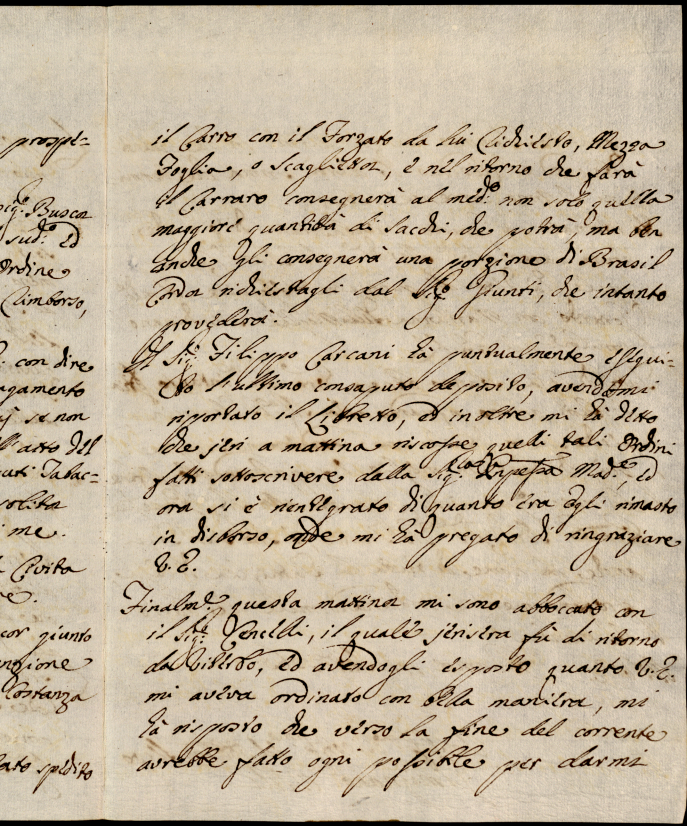 prospe=
Sig.r Busca
sud.o ed
Ordine
Rimborso,
con dire
agamento
se non
atto del
cuti Tabac=
solita
me.
Civita
re.
cor giunto
enzione
Costanza
ato spedito
il Carro con il Forzato da lui richiesto, Mezza
Foglia, o Scaglietta, e nel ritorno che farà
il Carraro consegnerà al med.o non solo quella
maggiore quantità di Sacchi, che potrà, ma ben
anche gli consegnerà una porzione di Brasil
Corda richiestagli dal Sig.r Giunti, che intanto
provederà.
Il Sig.r Filippo Carcani hà puntualmente esegui=
to l'ultimo consaputo deposito, avendomi
riportato il Libretto, ed inoltre mi hà detto
che jeri a mattina riscosse quelli tali Ordini
fatti sottoscrivere dalla Sig.ra Mad.e, ed
ora si è rientegrato di quanto era Egli rimasto
in disborso, onde mi hà pregato di ringraziare
V. E.
Finalm.e questa mattina mi sono abboccato con
il Sig.r Cencelli, il quale jersera fù di ritorno
da Viterbo, ed avendogli esposto quanto V. E.
mi aveva ordinato con bella maniera, mi
hà risposto che verso la fine del corrente
avrebbe fatto ogni possibile per darmi